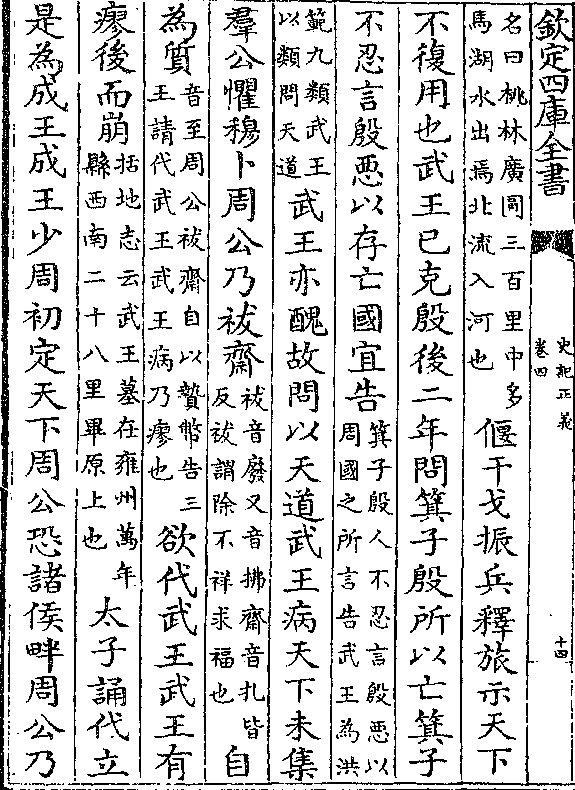 欽定四庫全書
史記正義
卷四
十四
名曰桃林廣圓三百里中多
馬湖水出焉北流入河也
偃干戈振兵釋旅示天下
不復用也武王已克殷後二年問箕子殷所以亡箕子
不忍言殷惡以存亡國宜告
箕子殷人不忍言殷惡以
周國之所言告武王為洪
範九類武王
以類問天道
武王亦醜故問以天道武王病天下未集
羣公懼穆卜周公乃祓齋
祓音廢又音拂齋音扎皆
反祓謂除不祥求福也
自
為質
音至周公祓齋自以贄幣告三
王請代武王武王病乃瘳也
欲代武王武王有
瘳後而崩
括地志云武王墓在雍州萬年
縣西南二十八里畢原上也
太子誦代立
是為成王成王少周初定天下周公恐諸侯畔周公乃